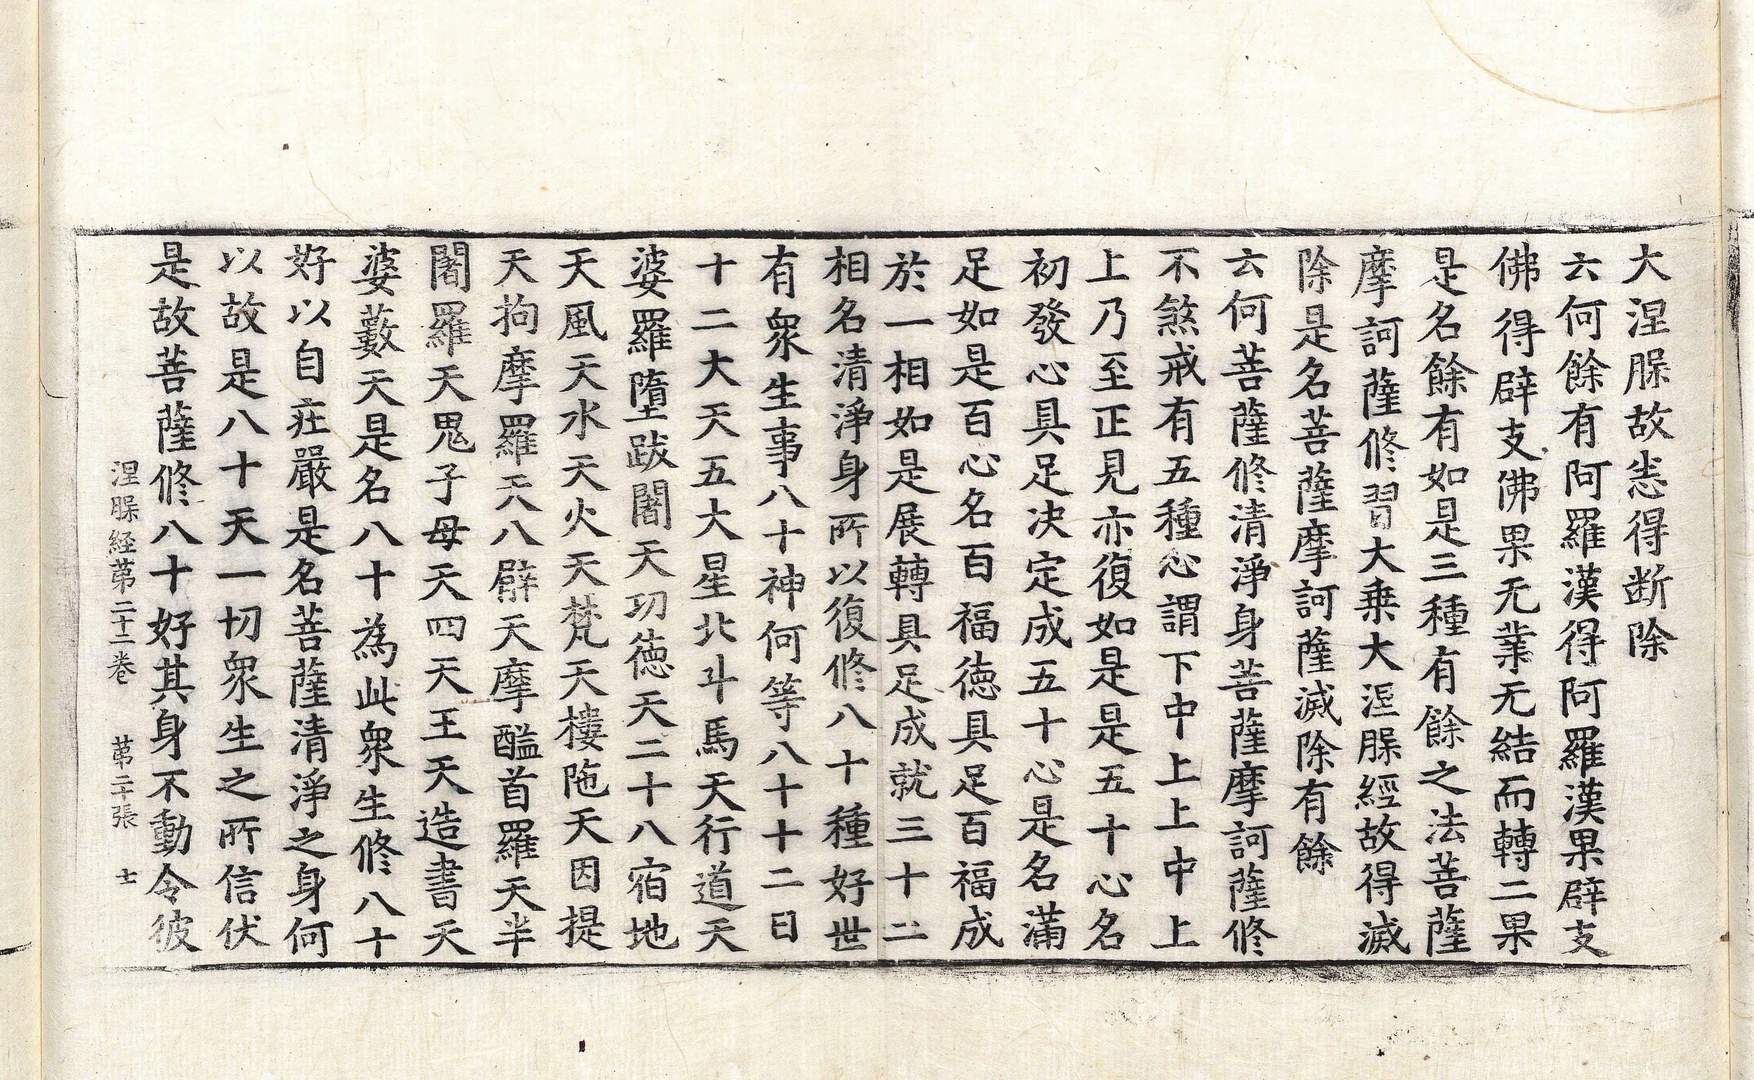 大涅腺故恙得断除
云何餘有阿羅漢得阿羅漢果辟支
佛得辟支佛果无業无結而轉二果
是名餘有如是三種有餘之法菩薩
摩訶薩修習大乗大涅腺經故得滅
除是名菩薩摩訶薩滅除有餘
云何菩薩修清淨身菩薩摩訶薩修
不煞戒有五種心謂下中上上中上
上乃至正見亦復如是是五十心名
初發心具足决定成五十心是名滿
足如是百心名百福徳具足百福成
於一相如是展轉具足成就三十二
相名清淨身所以復修八十種好世
有衆生事八十神何等八十十二日
十二大天五大星北斗馬天行道天
婆羅墮跋闍天㓛徳天二十八宿地
天風天水天火天梵天樓陁天因提
天拘摩羅天八臂天摩醯首羅天半
闍羅天鬼子母天四天王天造書天
婆藪天是名八十為此衆生修八十
好以自荘嚴是名菩薩清淨之身何
以故是八十天一切衆生之所信伏
是故菩薩修八十好其身不動令彼
涅腺経苐二十二卷 苐二十張 士